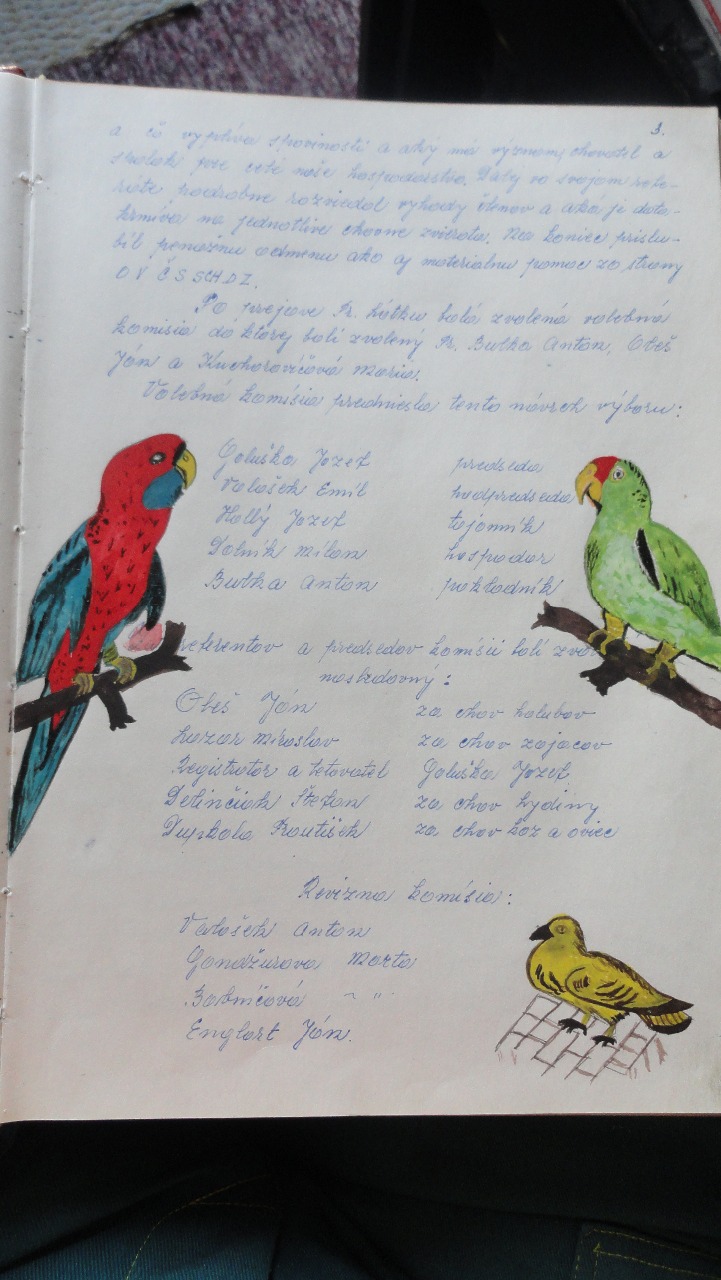 3.
a čo vyplýva z povinností a aký má význam, chovateľ a
spolok pre celé naše hospodárstvo. Ďalej vo svojom refe-
ráte podrobne rozviedol výhody členov a aká je doto-
krmiva na jednotlivé chovné zvieratá. Na koniec prislu-
bil peňažnú odmenu ako aj materiálnu pomoc zo strany
OV ČSSCHDZ.
Po prejave Pr. hátku bolá zvolená volebná
komisia do ktorej boli zvolený Pr. Butka Anton, Obeš
Ján a Kuchorovičová Mária.
Volebná komisia predniesla tento návrh výboru:
Goluška Jozef predseda
Valošek Emil podpredseda
Hollý Jozef tajomník
Dolník Milan hospodar
Butka Anton pokladník
referentov a predsedov komisií boli zvo
nasledovný:
Obeš Ján za chov holubov
Lazar Miroslav za chov zajacov
Registrator a tetovateľ Goluška Jozef
Detinčiak Štefan za chov hydiny
za chov koz a oviec
Revizna komisia:
Valošek Anton
Gondžurova Marta
Babničová - " -
Englart Ján.